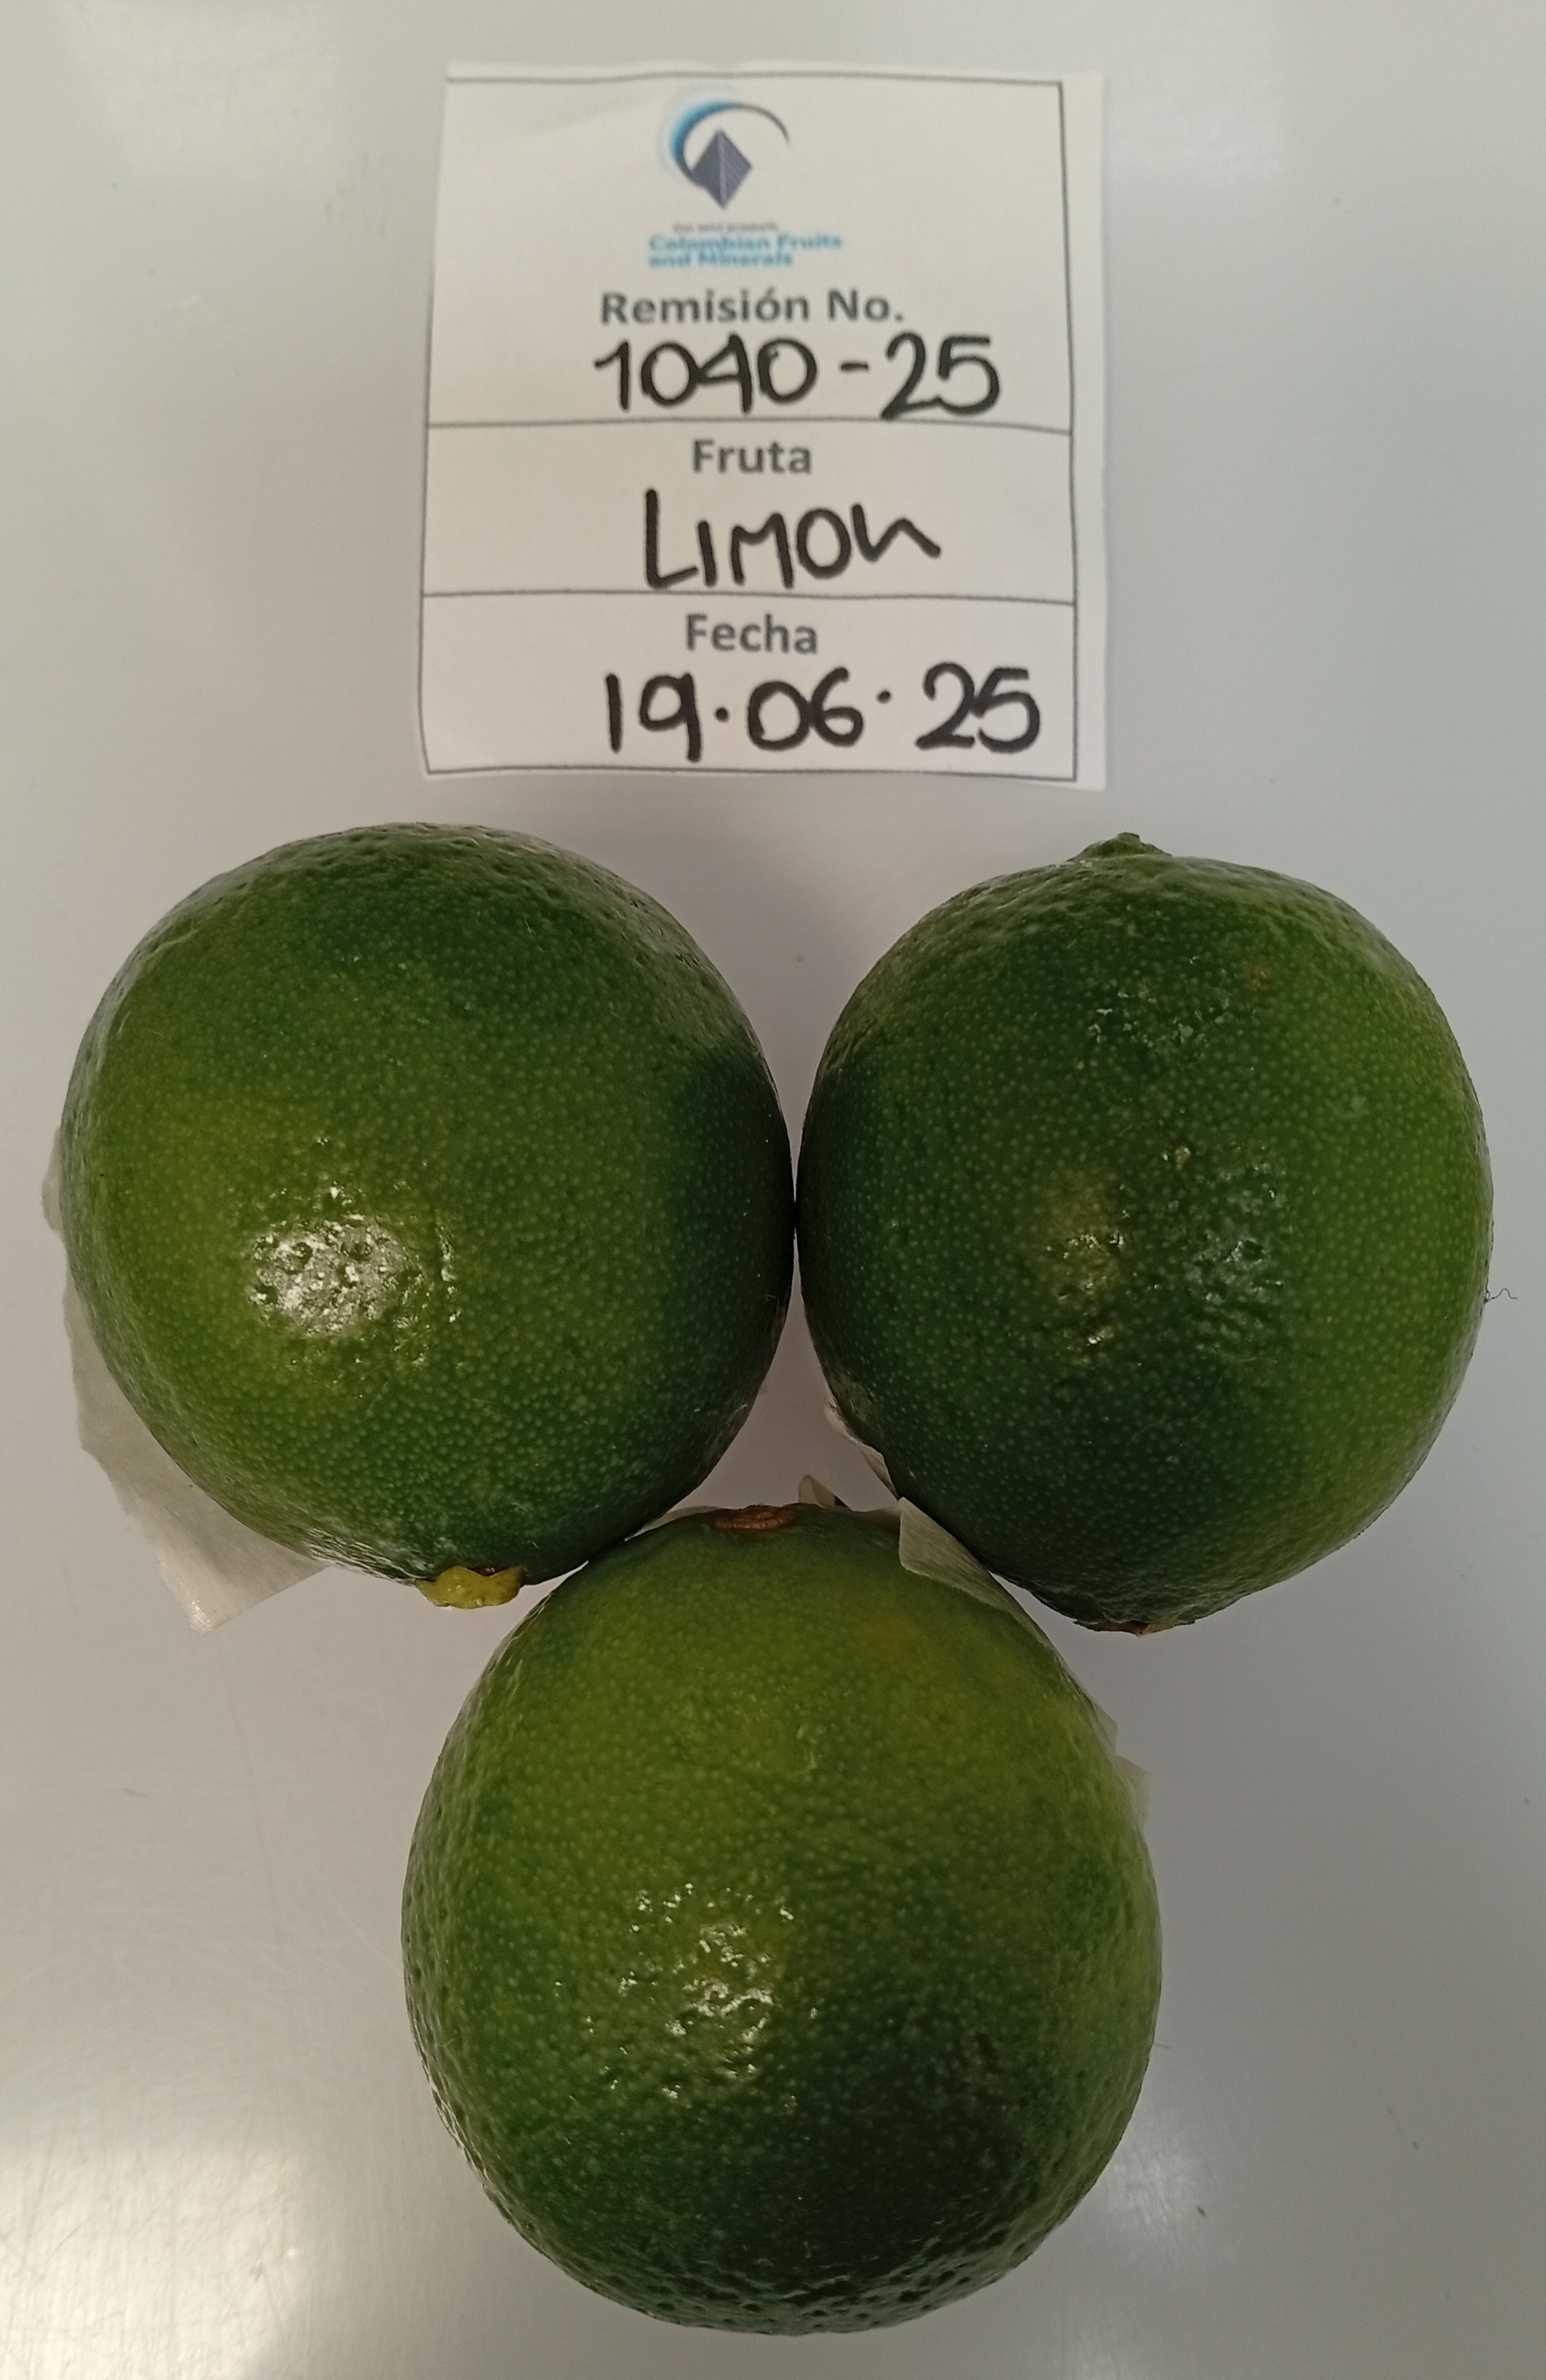 Colombian Fruits
and Minerals
Remisión No.
1040-25
Fruta
LIMON
Fecha
19.06.25